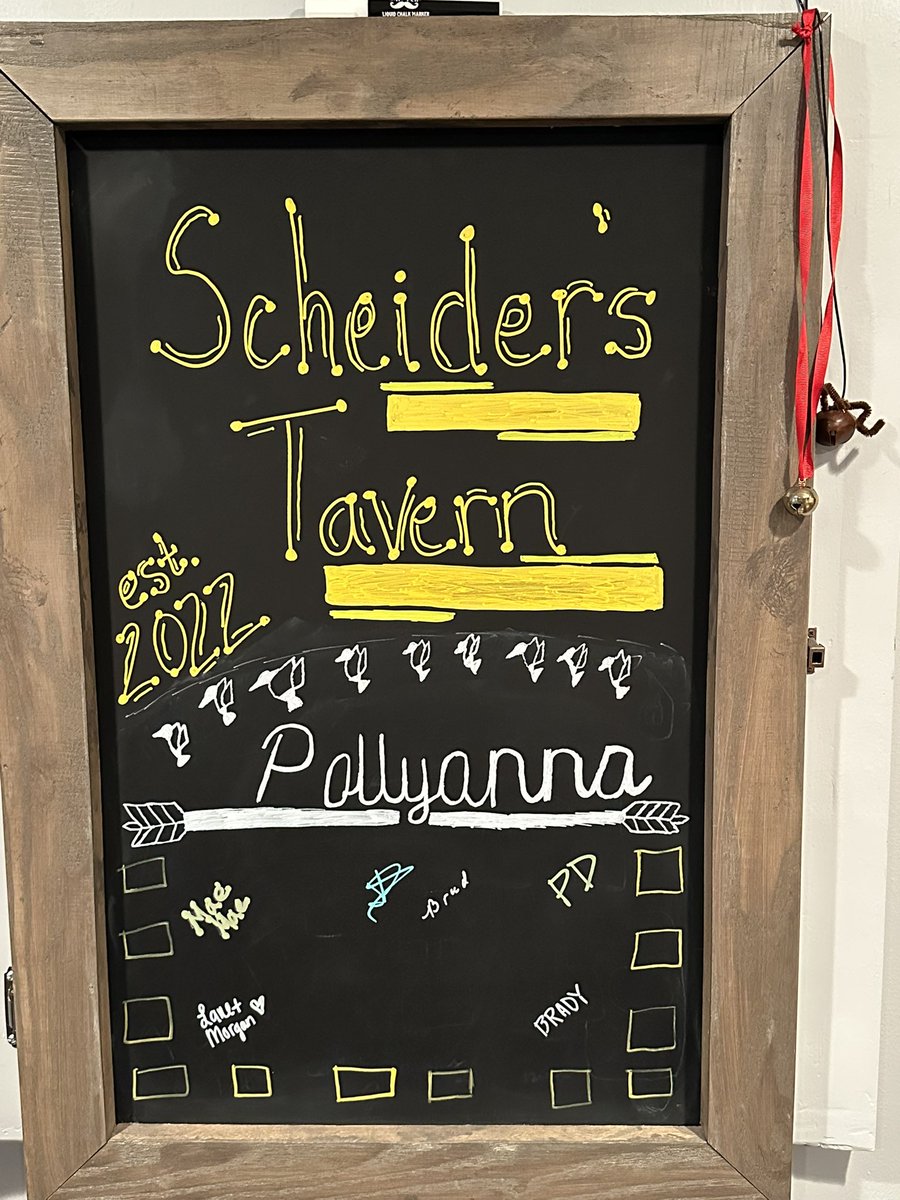 LIQUID CHALK MARKER
Scheider's
Tavern
est.
2022
Pollyanna
Mae
Mae
Brad
PD
Lane+
Morgan
BRADY